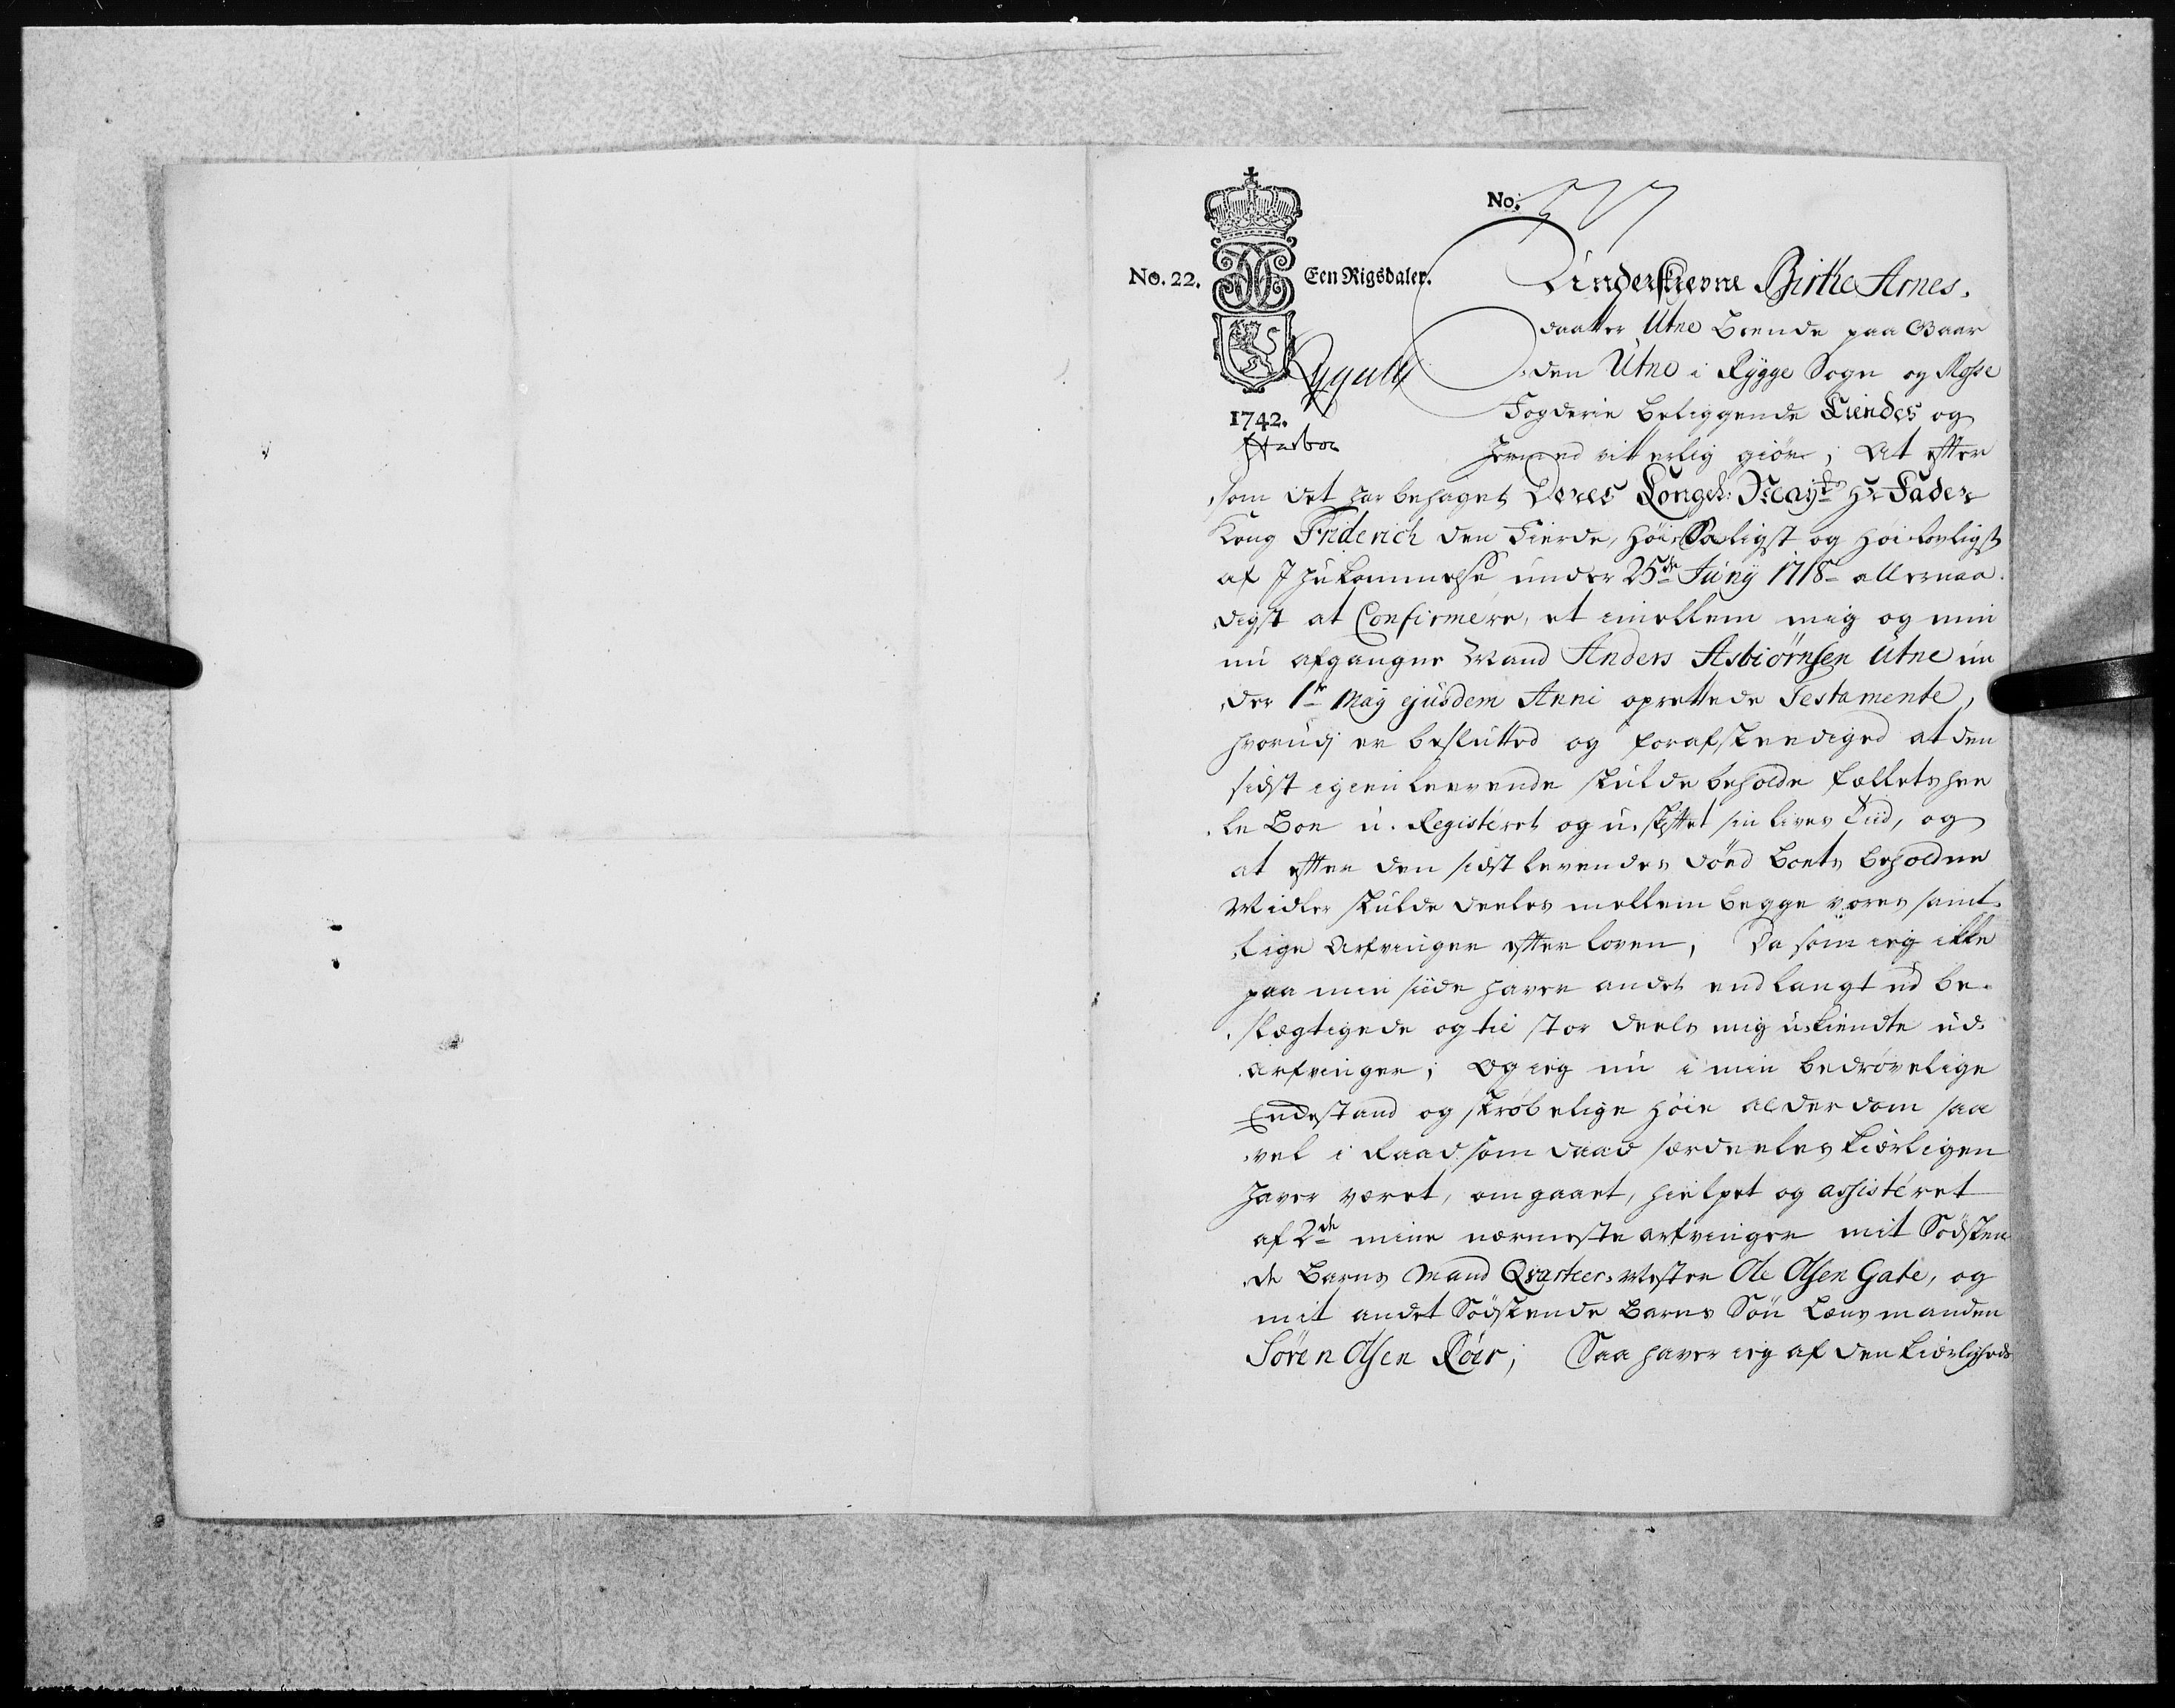 No.
No. 22. Een Rigsdaler.
1742.
Underskrevne Birthe Arnes-
daatter Utne Boende paa Gaar
den Utne i Rygge Sogn og Mosse
Fogderie beliggende Kiendes og
hermed vitterlig giör; At efter
som det har behaget Deres Kongel: Mayts Hr Fader
Kong Friderich den Fierde, höi-Saligst og höi-lovligst
af Ihukommelse under 25de Juny 1718 allernaa-
digst at Confirmere, et imellem mig og min
nu afgangne Mand Anders Asbiörnsen Utne un
der 1te May ejusdem Anni oprettede Testamente,
hvorudj er beslutted og forafskeediged at den
sidst igienlevende skulde beholde fællets hee
le Boe u-Registeret og u-skiftet sin lives Tiid, og
at efter den sidst levendes död Boets beholdne
Midler skulde deeles mellem begge vores samt-
lige Arfvinger efter loven; Da som ieg ikke
paa min siide haver andet end langt ud be-
slægtigede og til stor deels mig u-kiendte ud-
arfvinger; Og ieg nu i min bedrövelige
Enckestand og skröbelige höie alderdom saa
vel i Raad som daad særdeeles kiærligen
haver været, omgaaet, hielpet og assisteret
af 2de mine nærmeste arfvinger mit Södsken
de Barns Mand Qvarteer-Mester Ole Olsen Gate, og
mit andet Södskende Barns Sön Lænsmanden
Sören Olsen Röer; Saa haver ieg af den kiærligheds